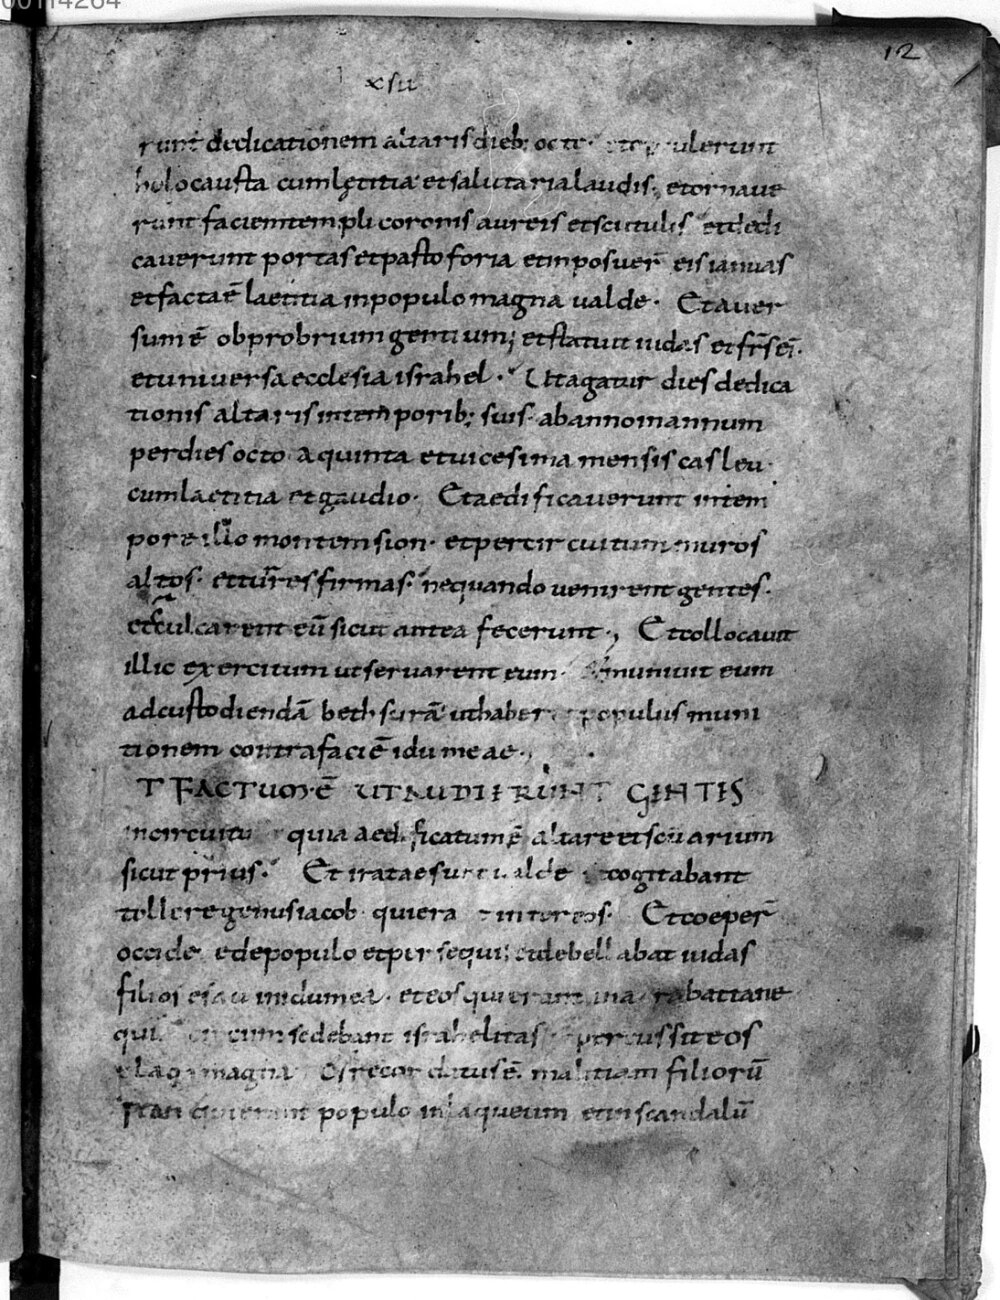 00114264
12
xsu
runt dedicationem altaris dieb; octo et optulerunt
holocausta cum lętitia et salutaria laudis; et ornaue
runt faciem templi coronis aureis et scutulis et dedi
cauerunt portas et pastoforia et inposuer̄ eis ianuas
et facta ē laetitia in populo magna ualde. Et auer
sum ē obprobrium gentium; et statuit iudas et fr̄s ei.
et uniuersa ecclesia israhel. Ut agatur dies dedica
tionis altaris in temporib; suis ab anno in annum
per dies octo a quinta et uicesima mensis casleu.
cum laetitia et gaudio. Et aedificauerunt in tem
pore illo montem sion. et per circuitum muros
altos. et turres firmas. nequando uenirent gentes.
et culcarent eū sicut antea fecerunt., Et collocauit
illic exercitum ut seruarent eum muniuit eum
ad custodiendā bethsurā ut haber populus muni
tionem contra faciē idumeae.,
T FACTUM Ē UT AUDIERUNT GENTES
in circuitu quia aedificatum ē altare et scuarium
sicut prius. Et iratae sunt ualde cogitabant
tollere genus iacob qui era inter eos. Et coeper̄
occide e de populo et persequi; et debellabat iudas
filios esau in idumea. et eos qui erant in rabattane
qui circumsedebant israhelitas percussit eos
plaga magna Et recordatus ē malitiam filiorū
populo in laqueum et in scandalū